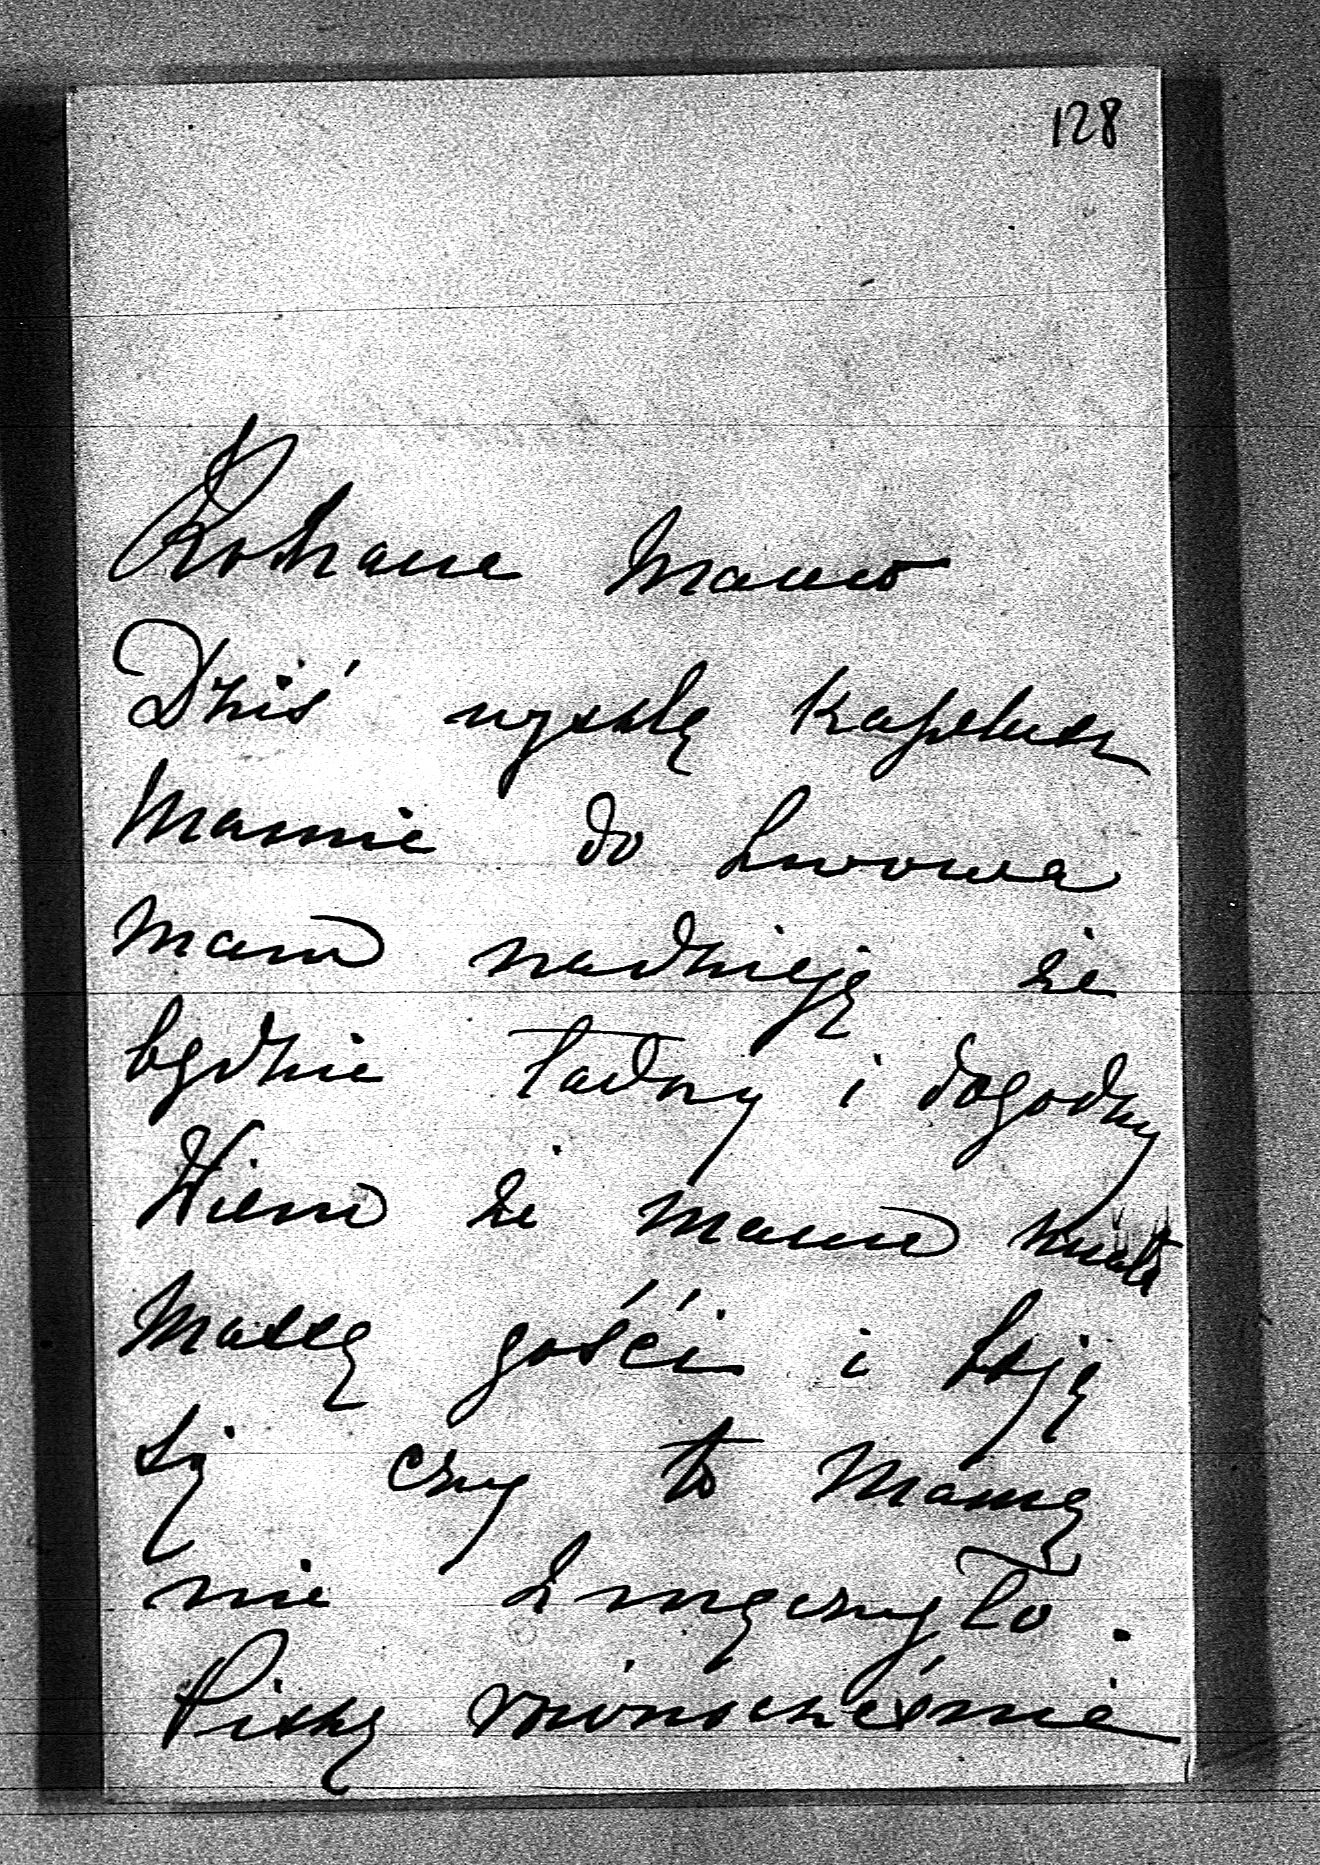 128
Kohane Mamo
Dziś wyszlę kapelusz
Mamie do Lwowa
mam nadzieję że
będzie ładny i dogodny
Wiem że mama miała
maszę gości i boję
się czy to Mamę
nie zmęczyło.
Piszę równocześnie